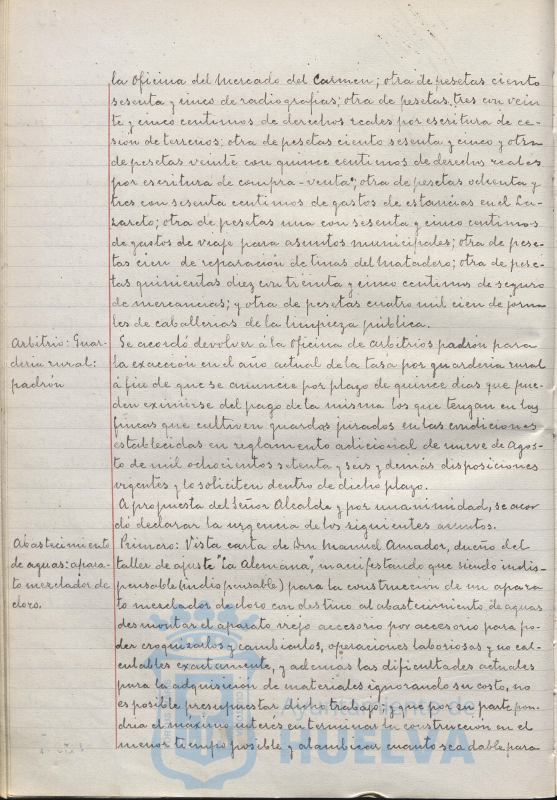 la oficina del mercado del Carmen; otra de pesetas ciento
sesenta y cinco de radiografias; otra de pesetas tres con vein
te y cinco centimos de derechos reales por escritura de ce-
sion de terrenos; otra de pesetas ciento sesenta y cinco y otra
de pesetas veinte con quince centimos de derechos reales
por escritura de compra-venta; otra de pesetas ochenta y
tres con sesenta centimos de gastos de estancias en el La-
zareto; otra de pesetas una con sesenta y cinco centimos
de gastos de viaje para asuntos municipales; otra de pese-
tas cien de reparación de tinas del Matadero; otra de pese-
tas quinientas diez con treinta y cinco centimos de seguro
de mercancias; y otra de pesetas cuatro mil cien de jorna-
les de caballerias de la limpieza pública.
Arbitrio: Guar-
deria rural:
padrón
Se acordó devolver á la oficina de arbitrios padrón para
la exacción en el año actual de la tasa por guarderia rural
á fin de que se anuncie por plazo de quince dias que pue-
den eximirse del pago de la misma los que tengan en las
fincas que cultiven guardas jurados en las condiciones
establecidas en reglamento adicional de nueve de Agos-
to de mil ochocientos setenta y seis y demás disposiciones
vigentes y lo soliciten dentro de dicho plazo.
A propuesta del Señor Alcalde y por unanimidad, se acor
dó declarar la urgencia de los siguientes asuntos.
Abastecimiento
de aguas: apara-
to mezclador de
cloro.
Primero: Vista carta de Don Manuel Amador, dueño del
taller de ajuste "La Alemana", manifestando que siendo indis-
pensable (indispensable) para la construcción de un apara
to mezclador de cloro con destino al abastecimiento de aguas
desmontar el aparato viejo accesorio por accesorio para po-
der croquizarlos y cambiarlos, operaciones laboriosas y no cal-
culables exactamente, y además las dificultades actuales
para la adquisición de materiales ignorando su costo, no
es posible presupuestar dicho trabajo, y que por su parte pon-
dria el máximo interés en terminar la construcción en el
menor tiempo posible y alambicar cuanto sea dable para
Ayuntamiento de
HUELVA